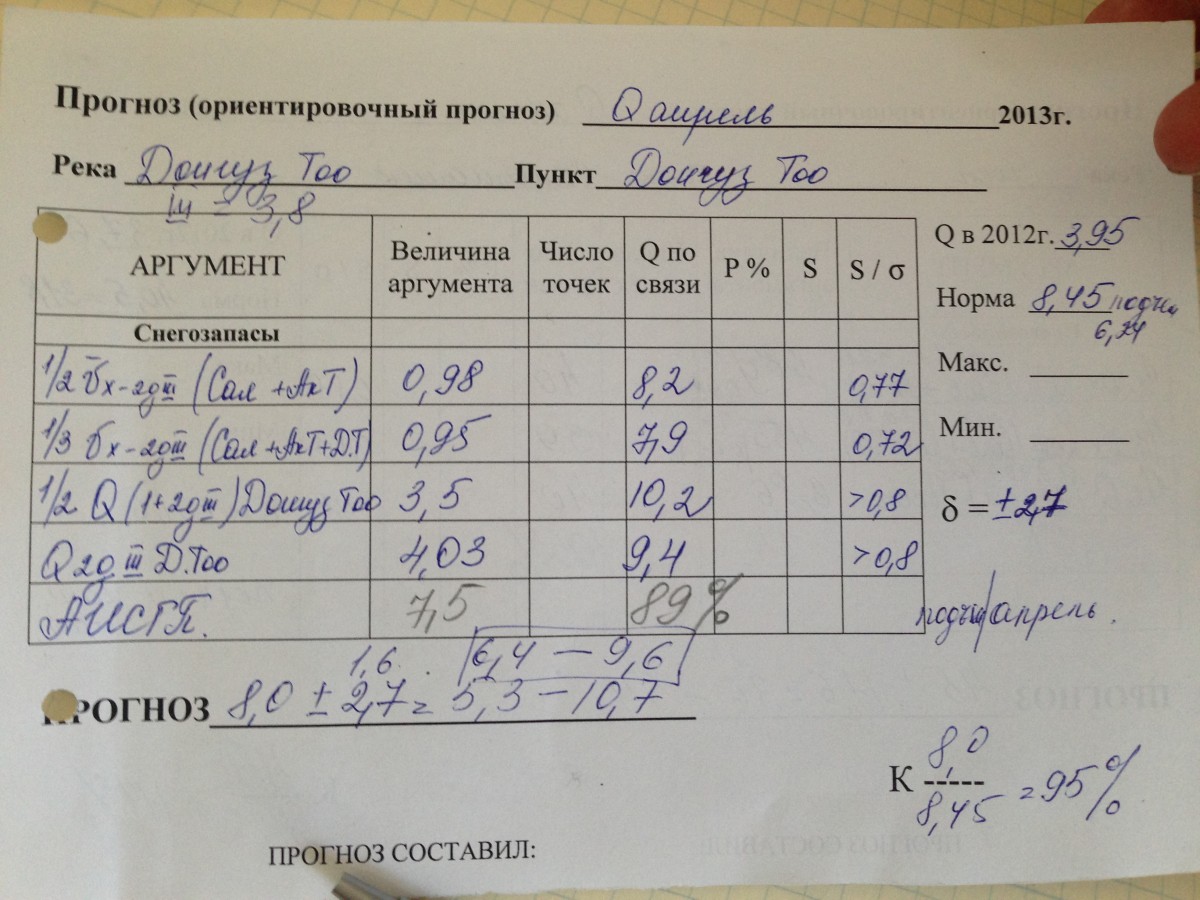 Прогноз (ориентировочный прогноз) Q апрель 2013г.
Река Донгуз Тоо Пункт Донгуз Тоо
III = 3,8
АРГУМЕНТ Величина аргумента Число точек Q по связи Р % S S / σ
Снегозапасы
1/2 x-2д III (Сал +АкТ) 0,98 8,2 0,77
1/3 x-2д III (Сал +АкТ+Д.Т) 0,95 7,9 0,72
1/2 Q (1+2д III) Донгуз Тоо 3,5 10,2 >0,8
Q 2д III Д.Тоо 4,03 9,4 >0,8
АИСГП. 7,5 89%
Q в 2012г. 3,95
Норма 8,45
6,74
Макс.
Мин.
δ = ±2,7
апрель.
1,6 6,4 – 9,6
ПРОГНОЗ 8,0 ± 2,7 = 5,3 – 10,7
К 8,0 ----- 8,45 = 95%
ПРОГНОЗ СОСТАВИЛ: